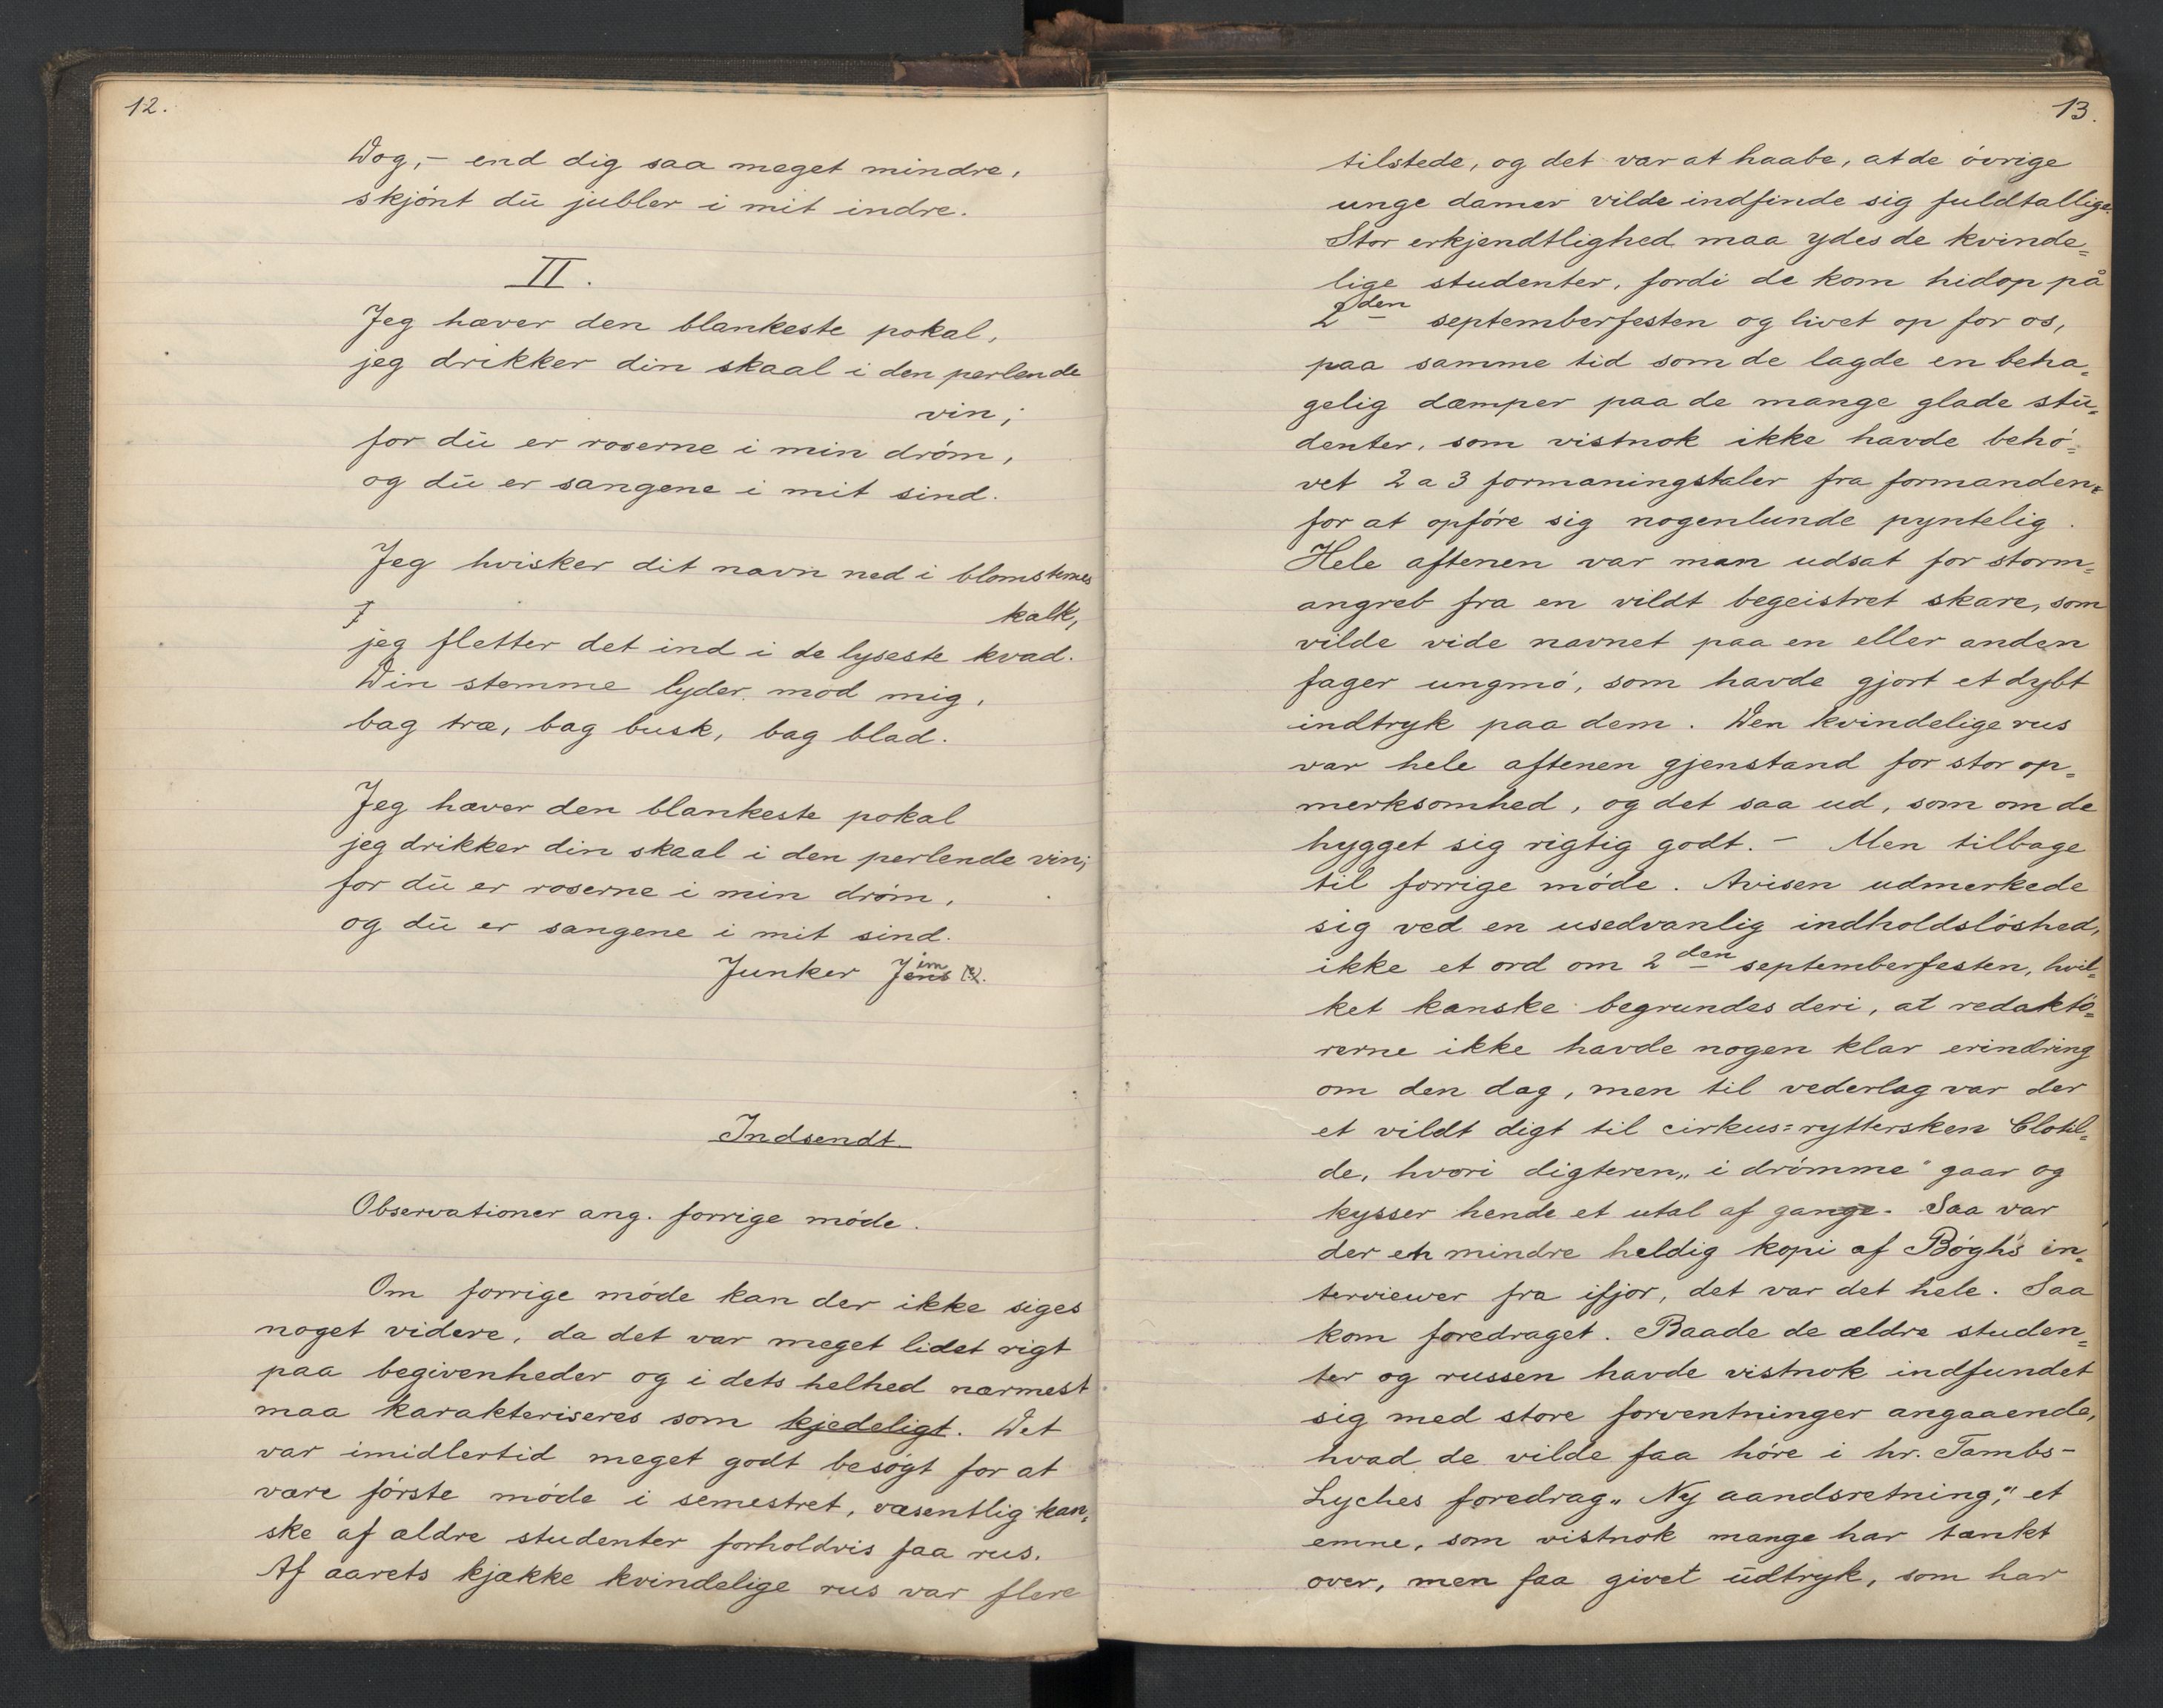 12.
Dog,- end dig saa meget mindre,
skjønt du jubler i mit indre.
II.
Jeg hæver den blankeste pokal,
jeg drikker din skaal i den perlende
vin;
for du er roserne i min drøm,
og du er sangene i mit sind.
Jeg hvisker dit navn ned i blomsternes
kalk,
jeg fletter det ind i de lyseste kvad.
Din stemme lyder mod mig,
bag træ, bag busk, bag blad.
Jeg hæver den blankeste pokal
jeg drikker din skaal i den perlende vin;
for du er roserne i min drøm,
og du er sangene i mit sind.
Junker Jens
Indsendt
Observationer ang. forrige møde.
Om forrige møde kan der ikke siges
noget videre, da det var meget lidet rigt
paa begivenheder og i dets helhed nærmest
maa karakteriseres som kjedeligt. Det
var imidlertid meget godt besøgt for at
være første møde i semestret, væsentlig kan=
ske af ældre studenter forholdvis faa rus.
Af aarets kjække kvindelige rus var flere
13.
tilstede, og det var at haabe, at de øvrige
unge damer vilde indfinde sig fuldtallige.
Stor erkjendtlighed maa ydes de kvinde=
lige studenter, fordi de kom hidop på
2den septemberfesten og livet op for os,
paa samme tid som de lagde en beha=
gelig dæmper paa de mange glade stu=
denter, som vistnok ikke havde behø=
vet 2 a 3 formaningstaler fra formanden
for at opføre sig nogenlunde pyntelig.
Hele aftenen var man udsat for storm=
angreb fra en vildt begeistret skare, som
vilde vide navnet paa en eller anden
fager ungmø, som havde gjort et dybt
indtryk paa dem. Den kvindelige rus
var hele aftenen gjenstand for stor op=
merksomhed, og det saa ud, som om de
hygget sig rigtig godt. - Men tilbage
til forrige møde. Avisen udmerkede
sig ved en usedvanlig indholdsløshed,
ikke et ord om 2den septemberfesten, hvil=
ket kanske begrundes deri, at redaktø=
rerne ikke havde nogen klar erindring
om den dag, men til vederlag var der
et vildt digt til cirkus=ryttersken Clotil=
de, hvori digteren „i drømme" gaar og
kysser hende et utal af gange. Saa var
der en mindre heldig kopi af Bøgh's in=
terviewer fra ifjor, det var det hele. Saa
kom foredraget. Baade de ældre studen=
ter og russen havde vistnok indfundet
sig med store forventninger angaaende,
hvad de vilde faa høre i hr. Tambs-
Lyches foredrag „Ny aandsretning," et
emne, som vistnok mange har tænkt
over, men faa givet udtryk, som har